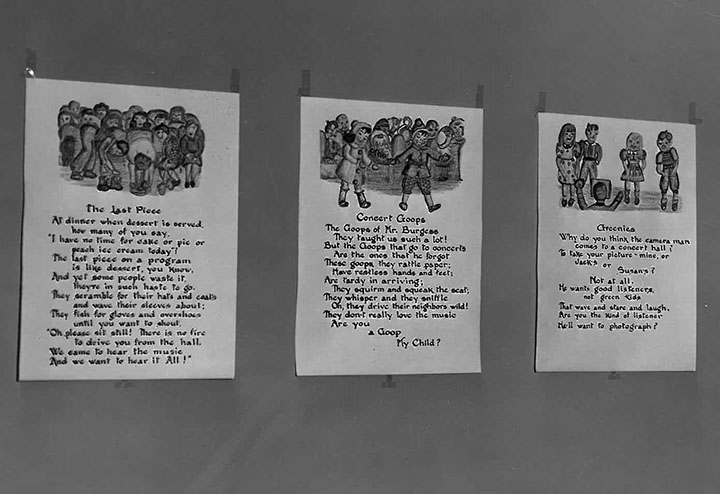 The Last Piece
At dinner when dessert is served,
how many of you say,
"I have no time for cake or pie or
peach ice cream today"?
The last piece on a program
is like dessert, you know,
And yet some people waste it,
they're in such haste to go.
They scramble for their hats and coats
and wave their sleeves about;
They fish for gloves and overshoes
until you want to shout,
"Oh, please sit still! There is no fire
to drive you from the hall.
We came to hear the music
And we want to hear it All!"
Concert Goops
The Goops of Mr. Burgess
They taught us such a lot!
But the Goops that go to concerts
Are the ones that he forgot.
These goops, they rattle paper;
Have restless hands and feet;
Are tardy in arriving;
They squirm and squeak the seat;
They whisper and they sniffle
Oh, they drive their neighbors wild!
They don't really love the music
Are you
a Goop
My Child?
Greenies
Why do you think the camera man
comes to a concert hall?
To take your picture - mine, or
Jack's or
Susan's?
Not at all.
He wants good listeners,
not green kids
That wave and stare and laugh.
Are you the kind of listener
He'll want to photograph?